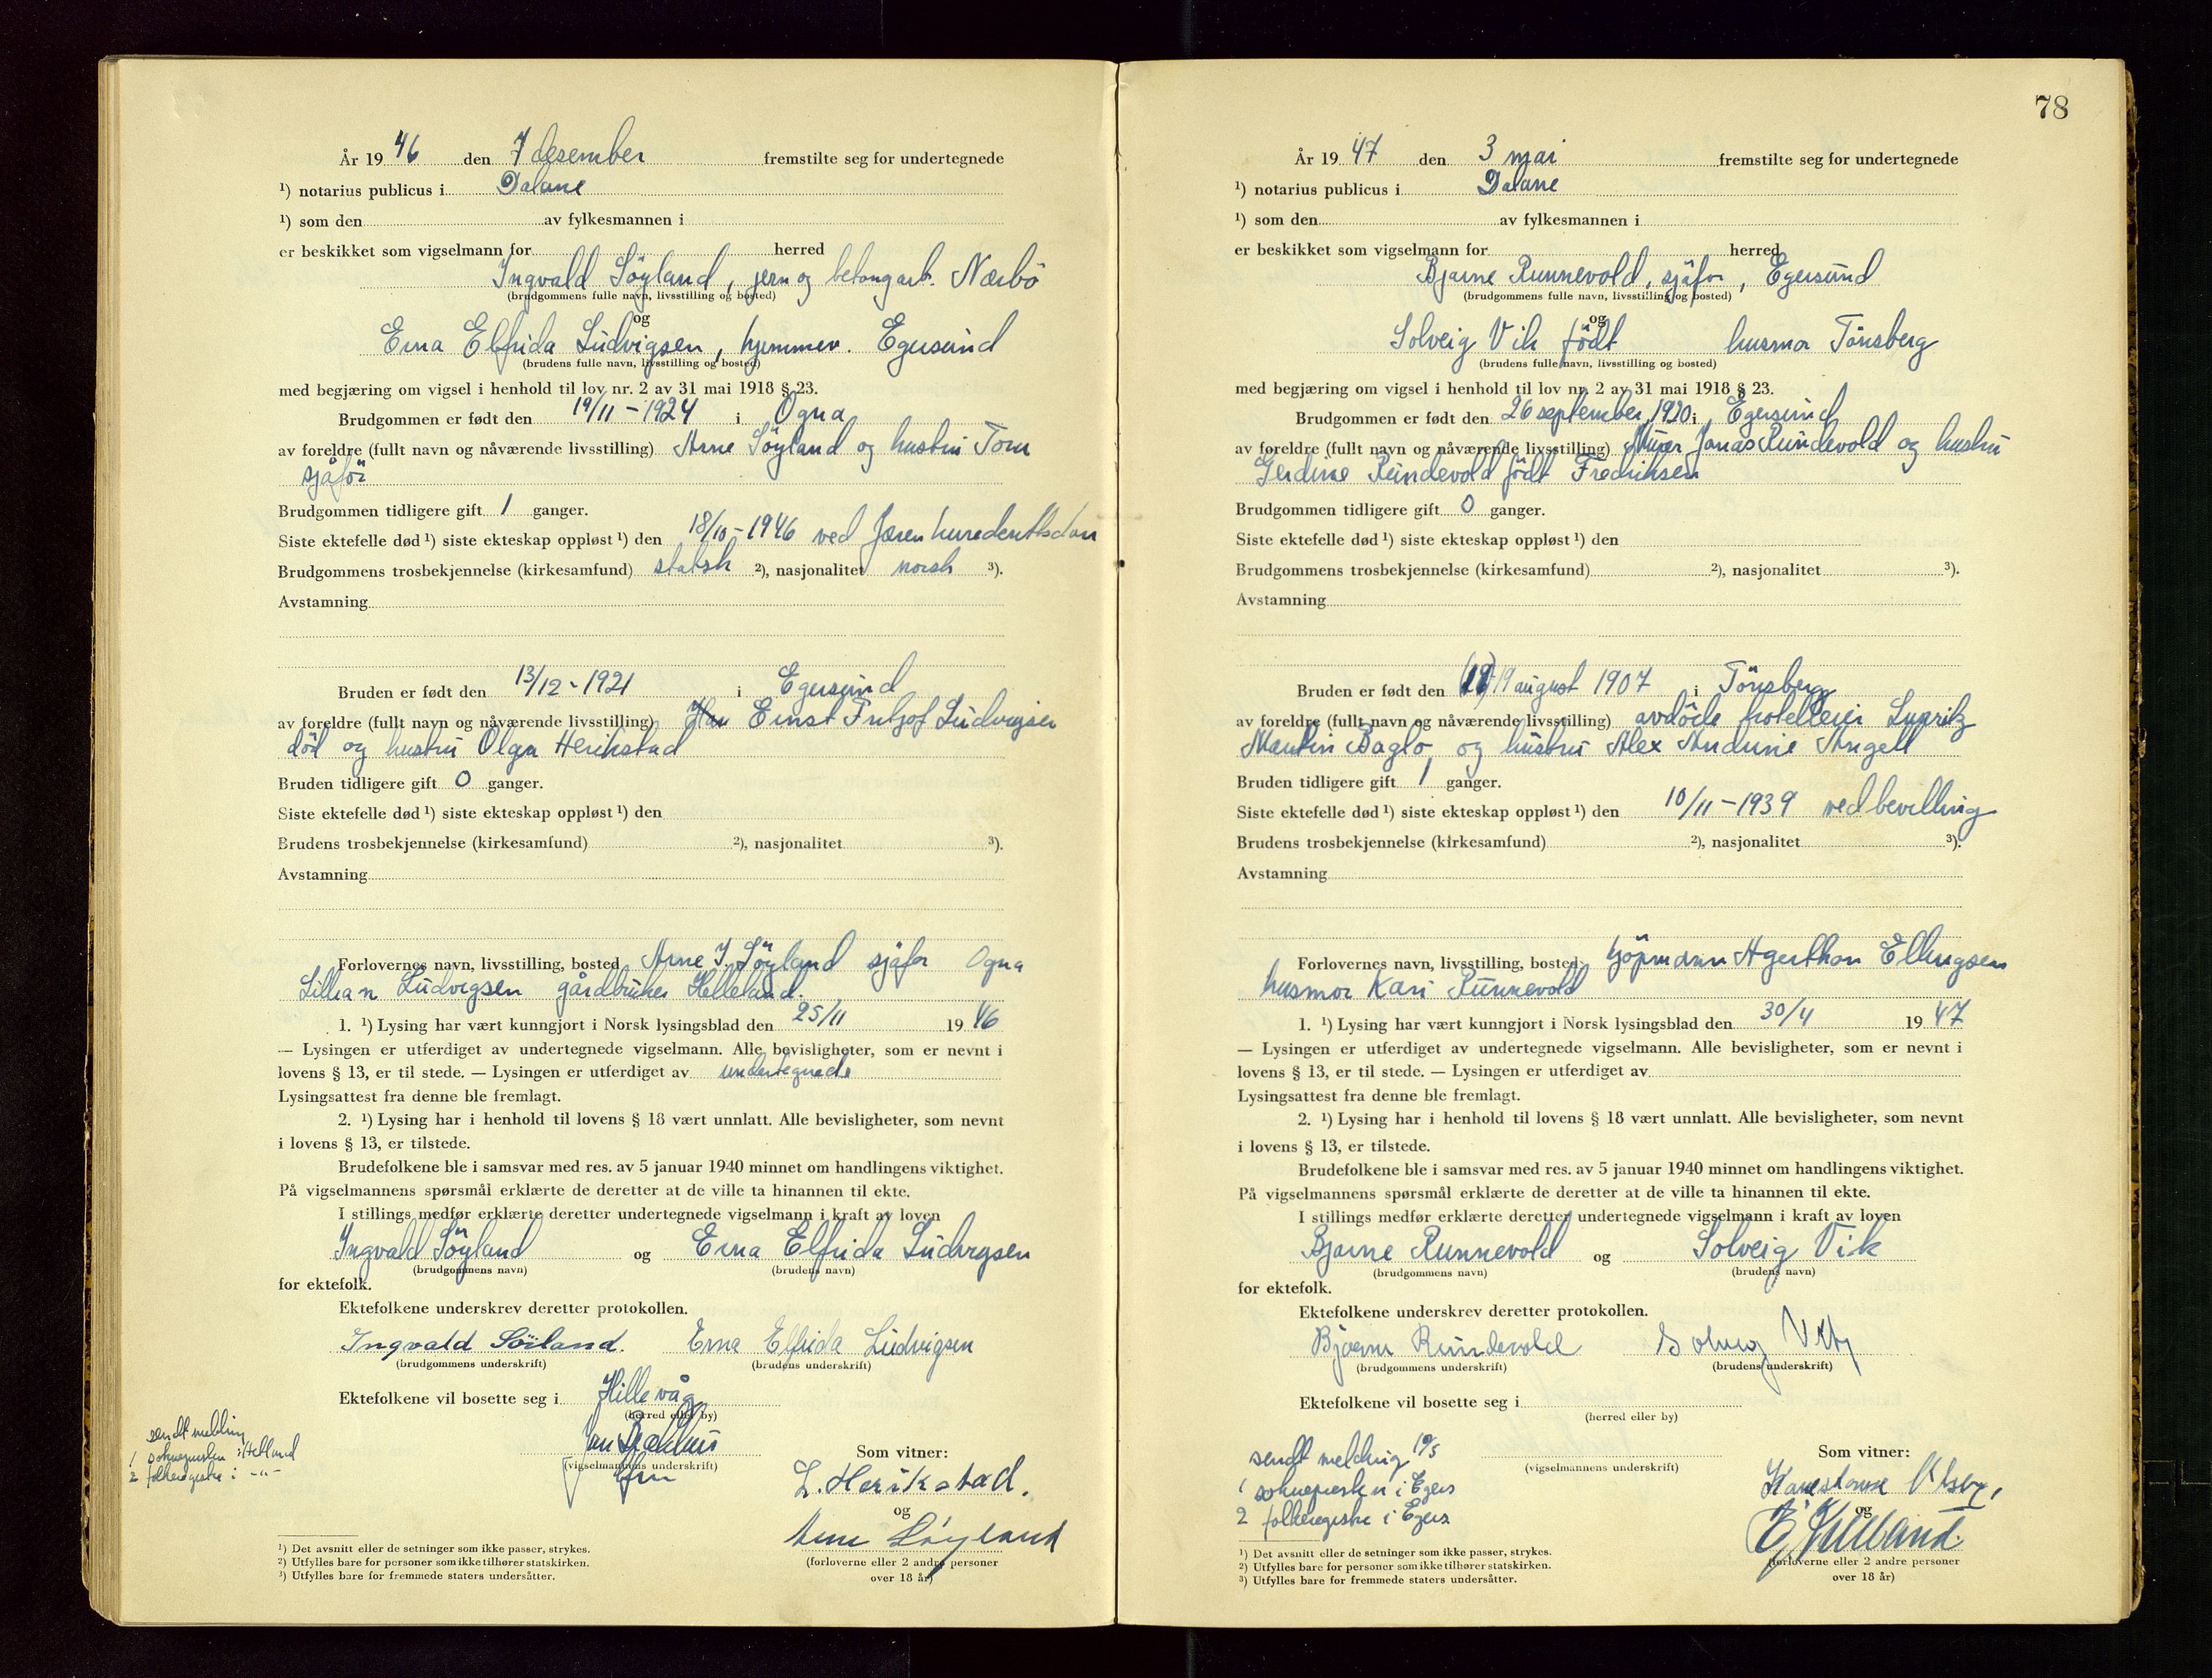 År 19 46 den 7 desember fremstilte seg for undertegnede
¹) notarius publicus i Dalane
¹) som den av fylkesmannen i
er beskikket som vigselmann for herred
Ingvald Söyland, jern og betongarb. Nærbö
(brudgommens fulle navn, livsstilling og bosted)
og
Erna Elfrida Ludvigsen, hjemmev. Egersund
(brudens fulle navn, livsstilling og bosted)
med begjæring om vigsel i henhold til lov nr. 2 av 31 mai 1918 § 23.
Brudgommen er født den 19/11 - 1924 i Ogna
av foreldre (fullt navn og nåværende livsstilling) Arne Söyland og hustru Tom
sjåför
Brudgommen tidligere gift 1 ganger.
Siste ektefelle død ¹) siste ekteskap oppløst ¹) den 18/10 - 1946 ved Jæren
Brudgommens trosbekjennelse (kirkesamfund) statsk ²), nasjonalitet norsk ³).
Avstamning
Bruden er født den 13/12 - 1921 i Egersund
av foreldre (fullt navn og nåværende livsstilling) Ernst Fritjof Ludvigsen
död og hustru Olga Herikstad
Bruden tidligere gift 0 ganger.
Siste ektefelle død ¹) siste ekteskap oppløst ¹) den
Brudens trosbekjennelse (kirkesamfund) ²), nasjonalitet ³).
Avstamning
Forlovernes navn, livsstilling, bosted Arne I. Söyland sjåfør Ogna
Lillian Ludvigsen gårdbruker Helleland.
1. ¹) Lysing har vært kunngjort i Norsk lysingsblad den 25/11 19 46
— Lysingen er utferdiget av undertegnede vigselmann. Alle bevisligheter, som er nevnt i
lovens § 13, er til stede. — Lysingen er utferdiget av undertegnede
Lysingsattest fra denne ble fremlagt.
2. ¹) Lysing har i henhold til lovens § 18 vært unnlatt. Alle bevisligheter, som nevnt
i lovens § 13, er tilstede.
Brudefolkene ble i samsvar med res. av 5 januar 1940 minnet om handlingens viktighet.
På vigselmannens spørsmål erklærte de deretter at de ville ta hinannen til ekte.
I stillings medfør erklærte deretter undertegnede vigselmann i kraft av loven
Ingvald Söyland og Erna Elfrida Ludvigsen
(brudgommens navn) (brudens navn)
for ektefolk.
Ektefolkene underskrev deretter protokollen.
Ingvald Söiland. Erna Elfrida Ludvigsen
(brudgommens underskrift) (brudens underskrift)
Ektefolkene vil bosette seg i Hillevåg
(herred eller by)
(vigselmannens underskrift)
sendt melding
1 soknepresten i Helland
2 folkeregistre i -"-
Som vitner:
L. Herikstad.
og
Arne Söyland
(forloverne eller 2 andre personer
over 18 år)
¹) Det avsnitt eller de setninger som ikke passer, strykes.
²) Utfylles bare for personer som ikke tilhører statskirken.
³) Utfylles bare for fremmede staters undersåtter.
78
År 19 47 den 3 mai fremstilte seg for undertegnede
¹) notarius publicus i Dalane
¹) som den av fylkesmannen i
er beskikket som vigselmann for herred
Bjarne Runnevold, sjåfør, Egersund
(brudgommens fulle navn, livsstilling og bosted)
og
Solveig Vik født husmor Tönsberg
(brudens fulle navn, livsstilling og bosted)
med begjæring om vigsel i henhold til lov nr. 2 av 31 mai 1918 § 23.
Brudgommen er født den 26 september 1920 i Egersund
av foreldre (fullt navn og nåværende livsstilling) Murer Jonas Rundevold og hustru
Gerdine Rundevold födt Fredriksen
Brudgommen tidligere gift 0 ganger.
Siste ektefelle død ¹) siste ekteskap oppløst ¹) den
Brudgommens trosbekjennelse (kirkesamfund) ²), nasjonalitet ³).
Avstamning
Bruden er født den (19) 19 august 1907 i Tönsberg
av foreldre (fullt navn og nåværende livsstilling) avdöde hotelleier
Martin Baglo og hustru Alex Andrine Angell
Bruden tidligere gift 1 ganger.
Siste ektefelle død ¹) siste ekteskap oppløst ¹) den 10/11 - 1939 ved bevilling
Brudens trosbekjennelse (kirkesamfund) ²), nasjonalitet ³).
Avstamning
Forlovernes navn, livsstilling, bosted kjöpmann Agerthon Ellingsen
husmor Kari Runnevold
1. ¹) Lysing har vært kunngjort i Norsk lysingsblad den 30/4 19 47
— Lysingen er utferdiget av undertegnede vigselmann. Alle bevisligheter, som er nevnt i
lovens § 13, er til stede. — Lysingen er utferdiget av
Lysingsattest fra denne ble fremlagt.
2. ¹) Lysing har i henhold til lovens § 18 vært unnlatt. Alle bevisligheter, som nevnt
i lovens § 13, er tilstede.
Brudefolkene ble i samsvar med res. av 5 januar 1940 minnet om handlingens viktighet.
På vigselmannens spørsmål erklærte de deretter at de ville ta hinannen til ekte.
I stillings medfør erklærte deretter undertegnede vigselmann i kraft av loven
Bjarne Runnevold og Solveig Vik
(brudgommens navn) (brudens navn)
for ektefolk.
Ektefolkene underskrev deretter protokollen.
Bjarne Rundevold Solveig Vik
(brudgommens underskrift) (brudens underskrift)
Ektefolkene vil bosette seg i
(herred eller by)
(vigselmannens underskrift)
sendt melding 19/5
1 soknepresten i Egers
2 folkeregistre i Egers
Som vitner:
og
(forloverne eller 2 andre personer
over 18 år)
¹) Det avsnitt eller de setninger som ikke passer, strykes.
²) Utfylles bare for personer som ikke tilhører statskirken.
³) Utfylles bare for fremmede staters undersåtter.